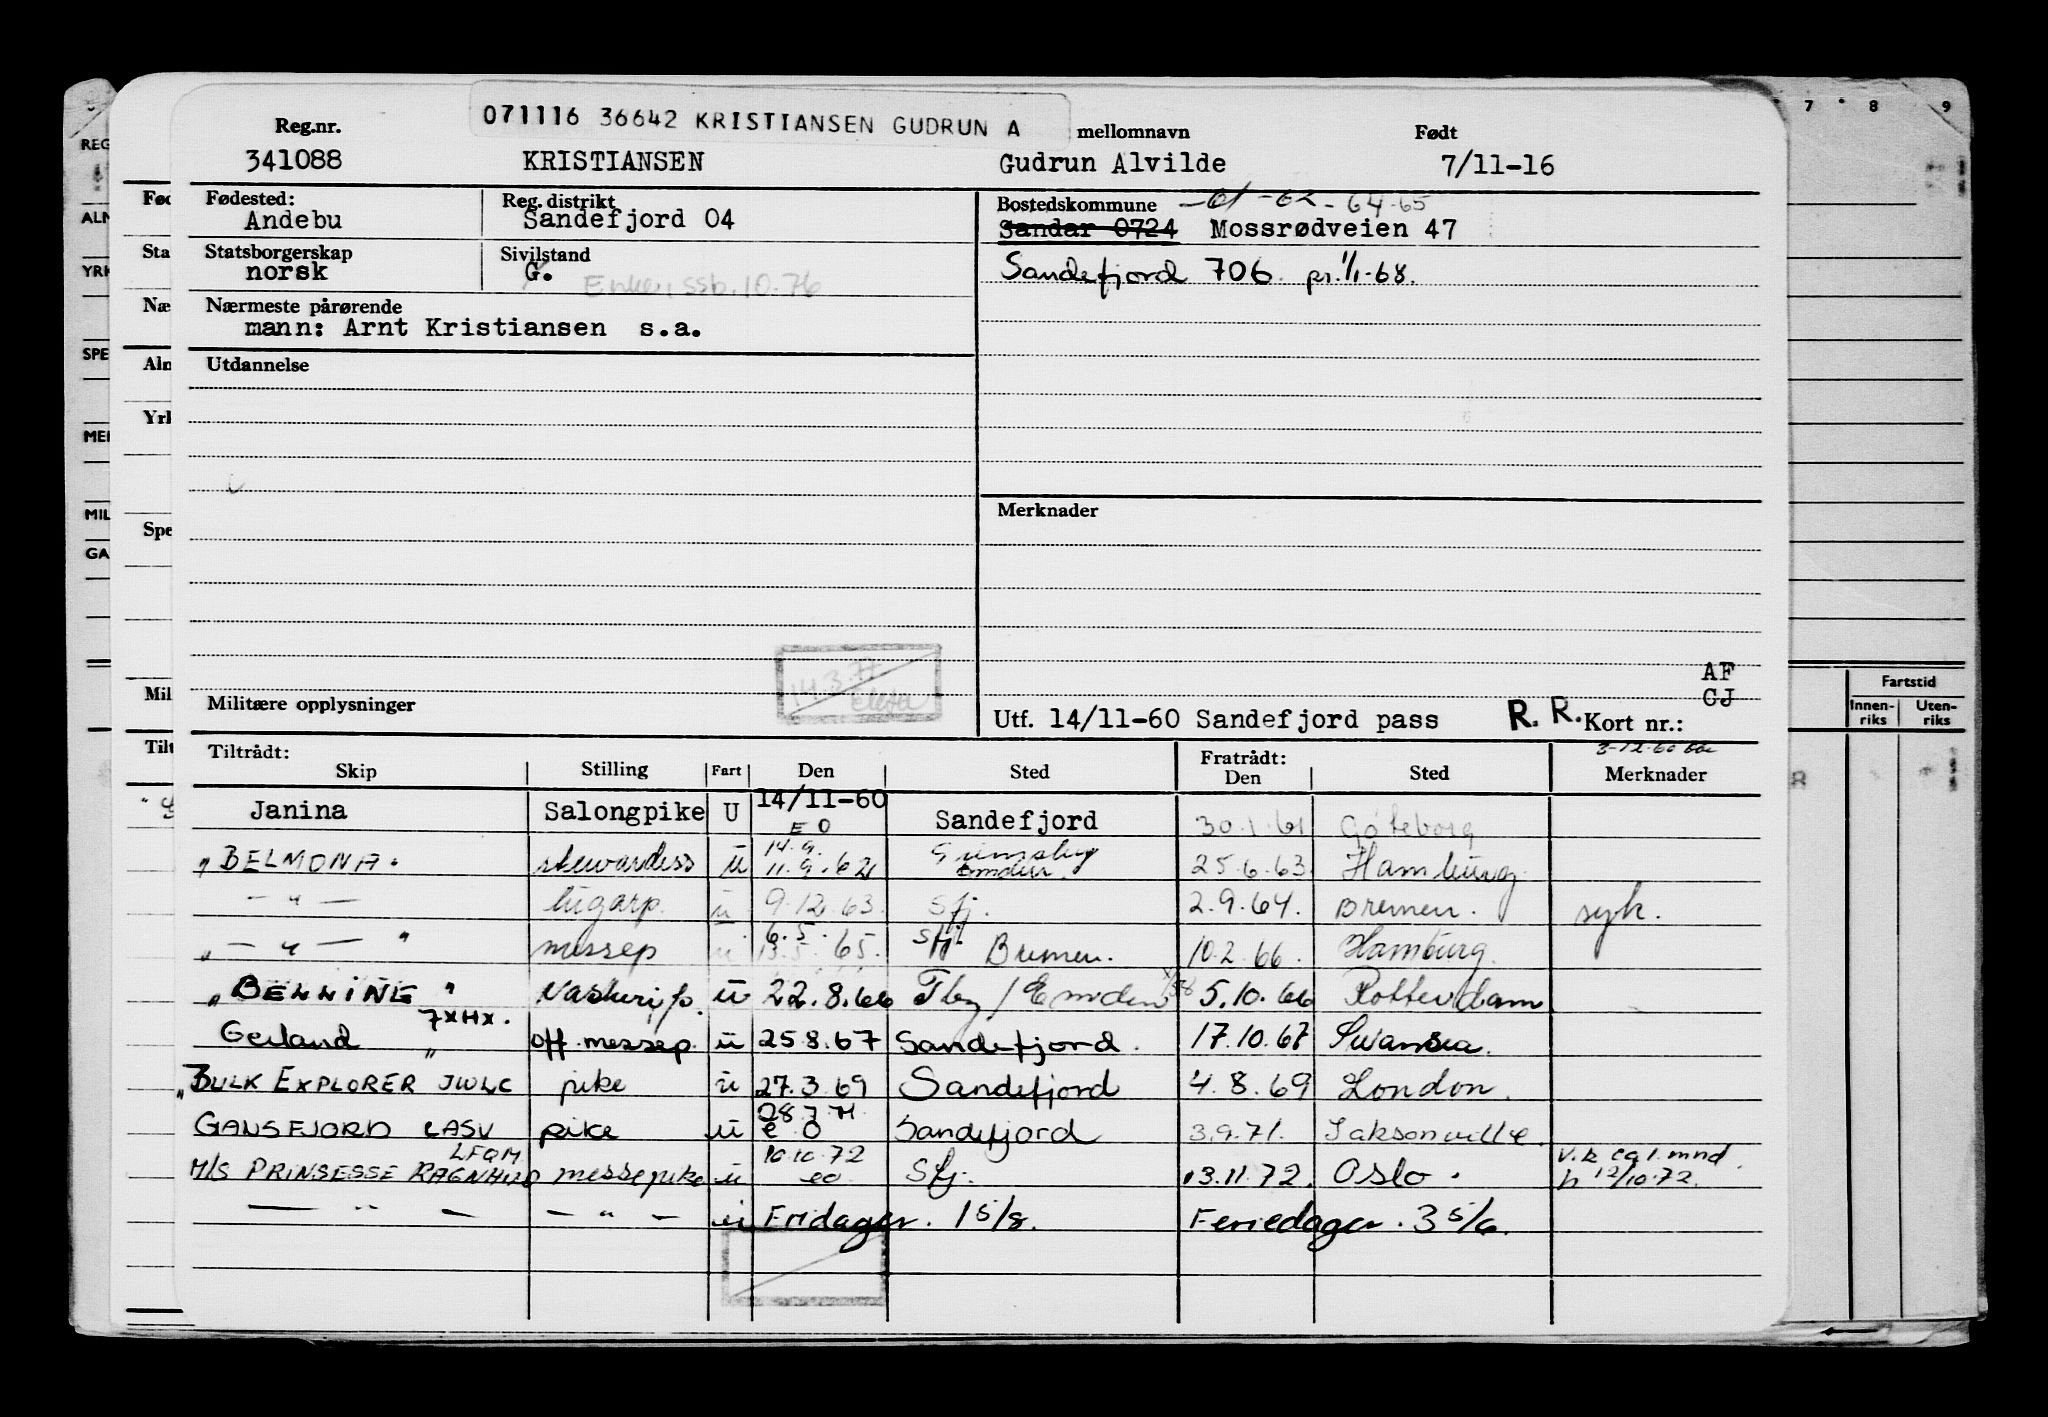 071116 36642 KRISTIANSEN GUDRUN A
Reg.nr. mellomnavn Født
341088 KRISTIANSEN Gudrun Alvilde 7/11-16
Fødested: Reg. distrikt Bostedskommune -61-62-64-65
Andebu Sandefjord 04 Sandar 0724 Mossrødveien 47
Statsborgerskap Sivilstand
norsk G. Enke, ssb. 10.76 Sandefjord 706 pr. 1/1-68.
Nærmeste pårørende
mann: Arnt Kristiansen s.a.
Utdannelse
Merknader
AF
GJ
Militære opplysninger 14.3.
Utf. 14/11-60 Sandefjord pass R. R. Kort nr.:
Tiltrådt: Fratrådt:
Skip Stilling Fart Den Sted Den Sted Merknader
Janina Salongpike U 14/11-60 EO Sandefjord 30.1.61 Göteborg
"BELMONA" stewardess u 14.9. 11.9.62 Grimsby Emden. 25.6.63 Hamburg
— " — lugarp. u 9.12.63. Sfj. 2.9.64. Bremen. syk.
" — " — " messep u 6.5. 13.5.65. Sfj. Bremen. 10.2.66. Hamburg.
"BELLINE" 7XHX. u 22.8.66 Fby/Emden 5.10.66 Rotterdam
Gerland " off.messep. u 25.8.67 Sandefjord. 17.10.67 Swansea.
"BULK EXPLORER JWLC pike u 27.3.69 Sandefjord 4.8.69 London.
GANSFJORD LASV pike u 28.7.71 e O Sandefjord 3.9.71. Jaksonville.
M/S PRINSESSE RAGNHILD LFQM messepike u 10.10.72 eo Sfj. 13.11.72. Oslo. v.k ca 1. mnd. h 12/10.72.
— " — — " — u Fridager. 1 5/8. Feriedager. 3 5/6.
REG
ALM
YRK
SPE
MIL
GA
Fød
Sta
Næ
Aln
Yrk
Spe
Mil
Tilt
7 8 9
Fartstid
Innen-riks Uten-riks